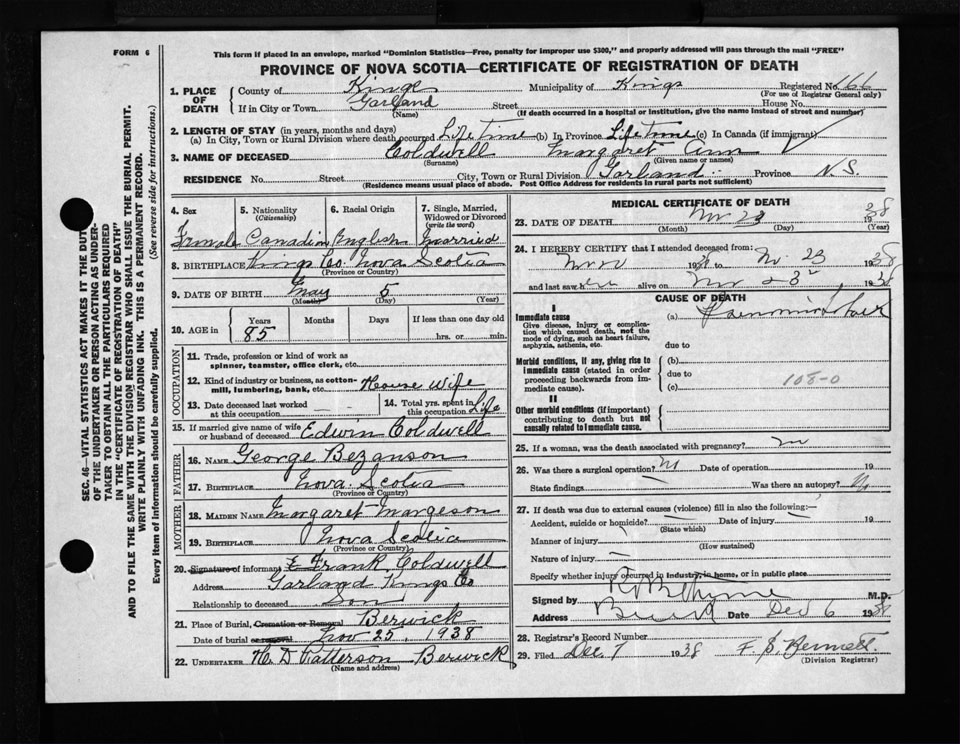 FORM 6
This form if placed in an envelope, marked "Dominion Statistics—Free, penalty for improper use $300," and properly addressed will pass through the mail "FREE"
PROVINCE OF NOVA SCOTIA—CERTIFICATE OF REGISTRATION OF DEATH
SEC. 46—VITAL STATISTICS ACT MAKES IT THE DUTY
OF THE UNDERTAKER OR PERSON ACTING AS UNDER-
TAKER TO OBTAIN ALL THE PARTICULARS REQUIRED
IN THE "CERTIFICATE OF REGISTRATION OF DEATH"
AND TO FILE THE SAME WITH THE DIVISION REGISTRAR WHO SHALL ISSUE THE BURIAL PERMIT.
WRITE PLAINLY WITH UNFADING INK. THIS IS A PERMANENT RECORD.
Every item of information should be carefully supplied. (See reverse side for instructions.)
1. PLACE OF DEATH
County of Kings Municipality of Kings Registered No. 166
(For use of Registrar General only)
If in City or Town Garland Street House No.
(Name) (If death occurred in a hospital or institution, give the name instead of street and number)
2. LENGTH OF STAY (in years, months and days)
(a) In City, Town or Rural Division where death occurred Life time (b) In Province Life time (c) In Canada (if immigrant)
3. NAME OF DECEASED Coldwell Margaret Ann
(Surname) (Given name or names)
RESIDENCE No. Street City, Town or Rural Division Garland Province N.S.
(Residence means usual place of abode. Post Office Address for residents in rural parts not sufficient)
4. Sex Female
5. Nationality (Citizenship) Canadian
6. Racial Origin English
7. Single, Married, Widowed or Divorced (write the word) Married
8. BIRTHPLACE Kings Co. Nova Scotia
(Province or Country)
9. DATE OF BIRTH May 5
(Month) (Day) (Year)
10. AGE in Years Months Days If less than one day old
85 hrs. or min.
OCCUPATION
11. Trade, profession or kind of work as
spinner, teamster, office clerk, etc.
12. Kind of industry or business, as cotton-
mill, lumbering, bank, etc. House Wife
13. Date deceased last worked
at this occupation
14. Total yrs. spent in
this occupation Life
15. If married give name of wife
or husband of deceased Edwin Coldwell
FATHER
16. NAME George Bezanson
17. BIRTHPLACE Nova Scotia
(Province or Country)
MOTHER
18. MAIDEN NAME Margaret Margeson
19. BIRTHPLACE Nova Scotia
(Province or Country)
20. Signature of informant E Frank Coldwell
Address Garland Kings Co
Relationship to deceased Son
21. Place of Burial, Cremation or Removal Berwick
Date of burial or removal Nov 25, 1938
22. UNDERTAKER H. D Patterson Berwick
(Name and address)
MEDICAL CERTIFICATE OF DEATH
23. DATE OF DEATH Nov 23 1938
(Month) (Day) (Year)
24. I HEREBY CERTIFY that I attended deceased from:
1938 to Nov 23 1938
and last saw her alive on Nov 23 1938
CAUSE OF DEATH
I
Immediate cause
Give disease, injury or complica-
tion which caused death, not the
mode of dying, such as heart failure,
asphyxia, asthenia, etc.
(a)
due to
Morbid conditions, if any, giving rise to
immediate cause (stated in order
proceeding backwards from im-
mediate cause).
(b)
due to
(c) 108-0
II
Other morbid conditions (if important)
contributing to death but not
causally related to immediate cause.
25. If a woman, was the death associated with pregnancy? no
26. Was there a surgical operation? no Date of operation 19
State findings Was there an autopsy? no
27. If death was due to external causes (violence) fill in also the following:—
Accident, suicide or homicide? Date of injury 19
(State which)
Manner of injury
(How sustained)
Nature of injury
Specify whether injury occurred in industry, in home, or in public place
Signed by M.D.
Address Berwick Date Dec 6 1938
28. Registrar's Record Number
29. Filed Dec 7 1938 F. S. Bennett
(Division Registrar)